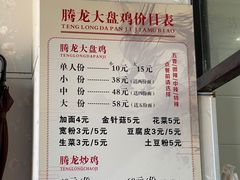 腾龙大盘鸡价目表
TENGLONGDAPANJIJIAMUBIAO
腾龙大盘鸡
TENGLONGDAPANJI
单人份 10元 15元
小份 38元
中份 48元
大份 58元
加面4元 金针菇5元 花菜5元
宽粉3元/5元 豆腐皮3元/5元
生菜3元/5元 土豆粉5元
腾龙炒鸡
TENGLONGCHAOJI